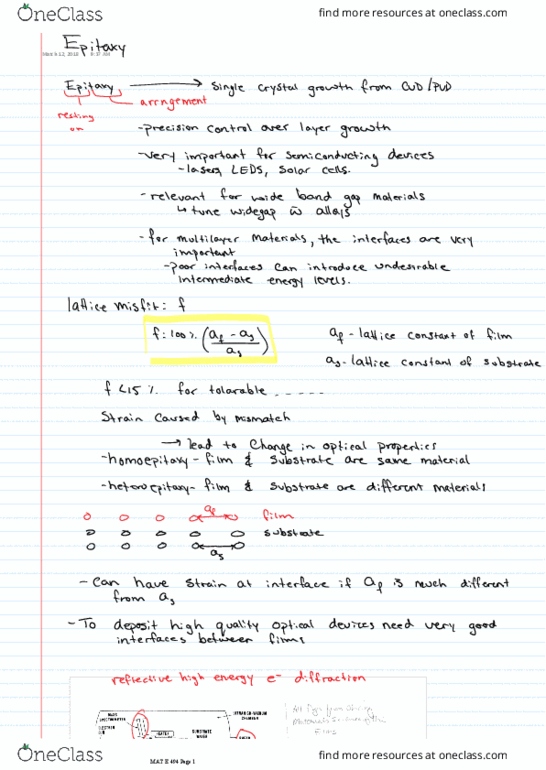 OneClass
find more resources at oneclass.com
Epitaxy
March 12, 2018
Epitaxy → Single crystal growth from CVD/PVD
arrngement
resting
on
-precision control over layer growth
-very important for semiconducting devices
-lasers, LEDS, Solar cells.
-relevant for wide band gap materials
↳ tune widegap w alloys
-for multilayer materials, the interfaces are very
important
-poor interfaces can introduce undesirable
intermediate energy levels.
lattice misfit: f
f: 100 % (af - as / as)
af - lattice constant of film
as - lattice constant of substrate
f <15 % for tolarable ......
Strain caused by mismatch
→ lead to change in optical properties
-homoepitaxy - film & substrate are same material
-heteroepitaxy - film & substrate are different materials
af
film
substrate
as
- Can have strain at interface if af is much different
from as
- To deposit high quality optical devices need very good
interfaces between films
reflective high energy e- diffraction
MASS
SPECTROMETER
ELECTRON
GUN
ULTRAHIGH-VACUUM
CHAMBER
SUBSTRATE
MAT E 494 Page 1
OneClass
find more resources at oneclass.com